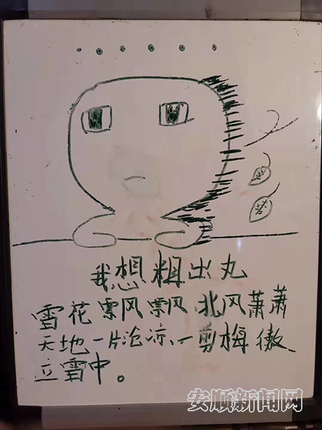 我想粗出丸
雪花飘飘 北风萧萧
天地一片沧凉、一剪梅傲
立雪中。
安顺新闻网